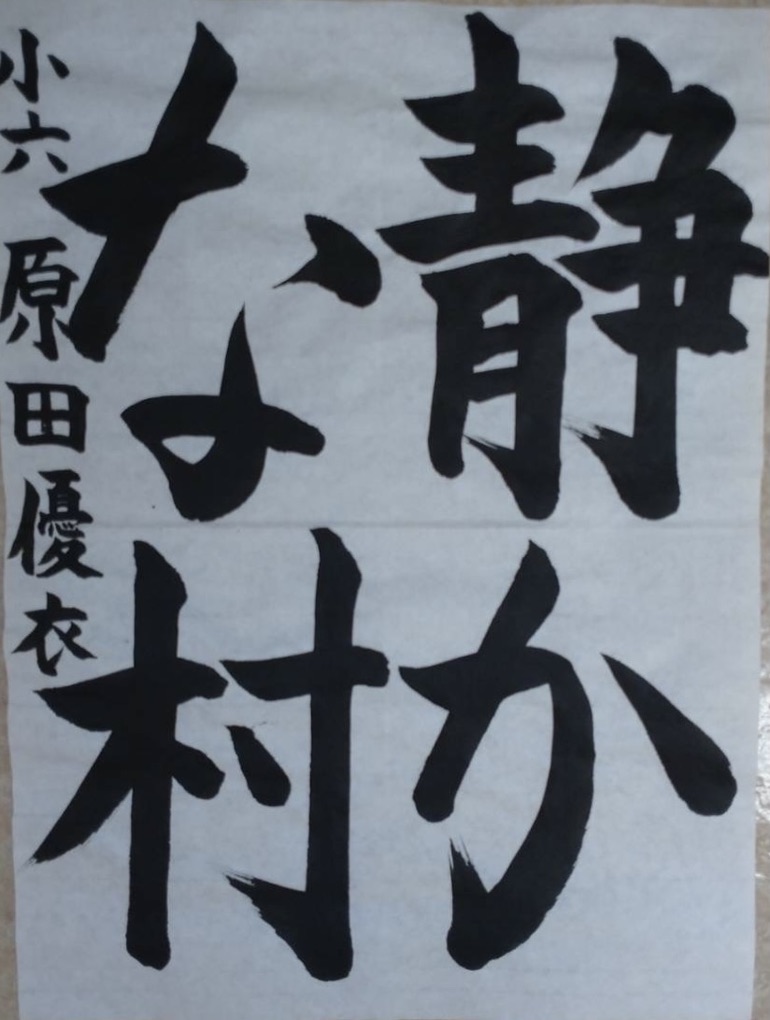 静か
な村
小六 原田優衣